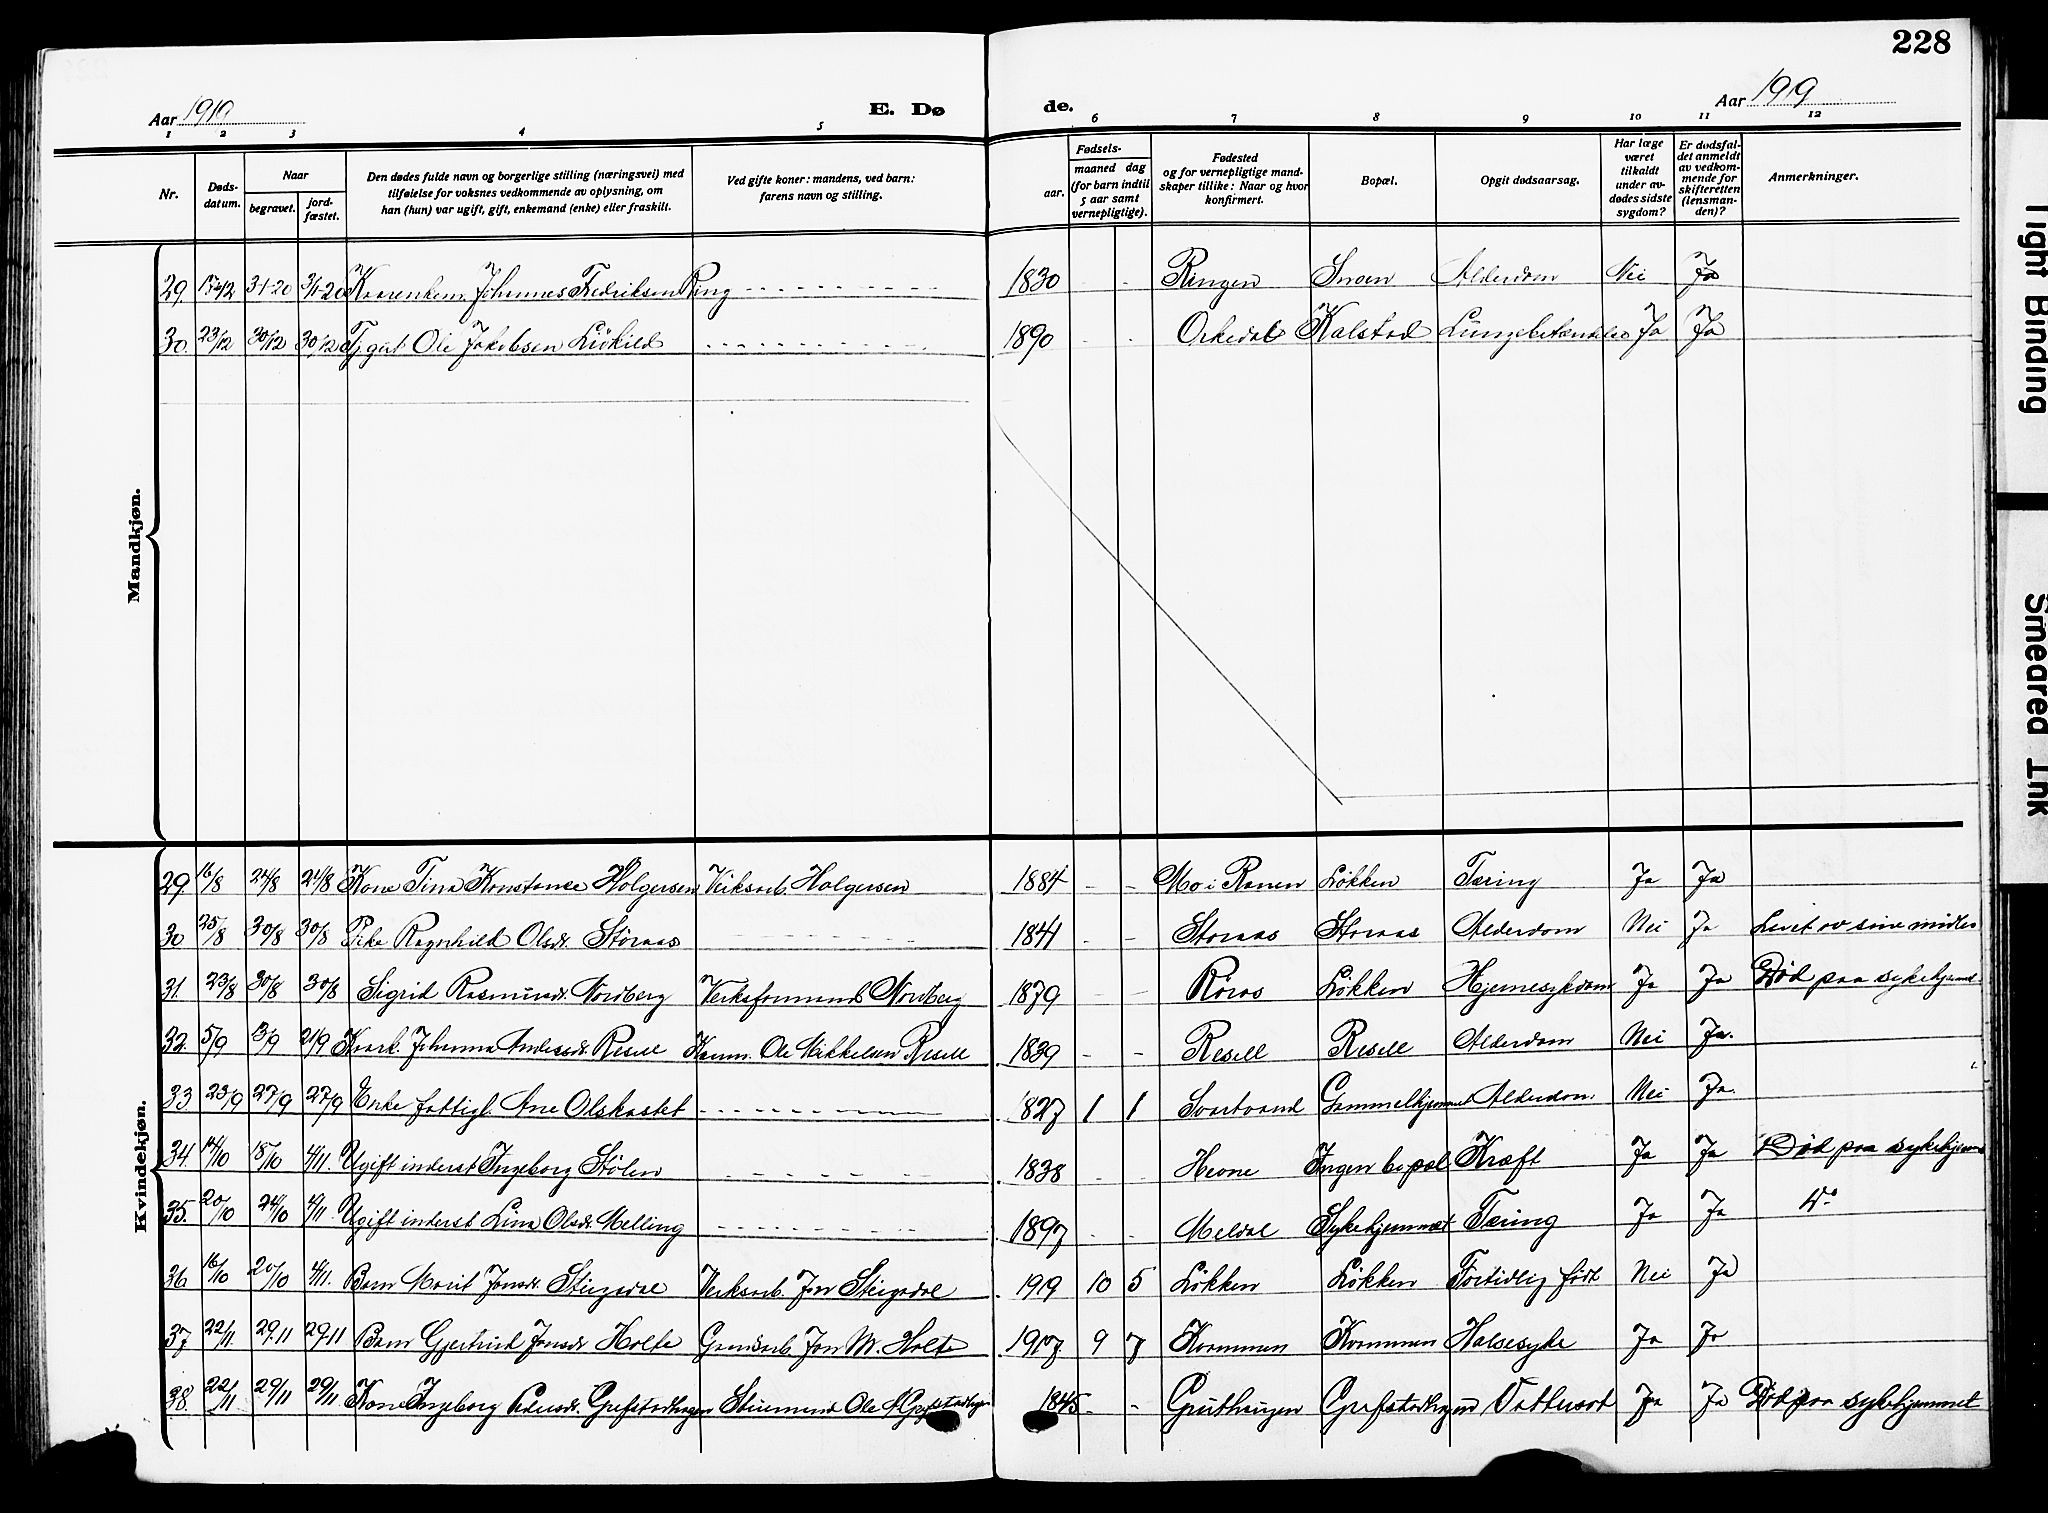 228
Aar 1919 E. Dø de. Aar 1919
1 2 3 4 5 6 7 8 9 10 11 12
Nr. Døds-datum. Naar begravet. jord-fæstet. Den dødes fulde navn og borgerlige stilling (næringsvei) med tilføielse for voksnes vedkommende av oplysning, om han (hun) var ugift, gift, enkemand (enke) eller fraskilt. Ved gifte koner: mandens, ved barn: farens navn og stilling. Fødsels- aar. maaned dag (for barn indtil 5 aar samt vernepligtige). Fødested og for vernepligtige mand-skaper tillike: Naar og hvor konfirmert. Bopæl. Opgit dødsaarsag. Har læge været tilkaldt under av-dødes sidste sygdom? Er dødsfal-det anmeldt av vedkom-mende for skifteretten (lensman-den)? Anmerkninger.
Mandkjøn.
29. 3/1-20 3/1-20 Johannes Fredriksen Ring 1830 Ringen Alderdom Nei Ja
30. 23/12 30/12 30/12 Tj. gut Ole Jakobsen 1890 Orkedal Kalstad Lungebetændelse Ja Ja
Kvindekjøn.
29. 16/8 21/8 21/8 Kone Tina Konstanse Holgersen Verksarb. Holgersen 1884 Mo i Ranen Løkken Tæring Ja Ja
30 25/8 30/8 30/8 Pike Ragnhild Olsdr. Storaas 1841 Storaas Storaas Alderdom Nei Ja Levet av sine midler
31. 23/8 30/8 30/8 Sigrid Rasmusdr. Nordberg Verksformand Nordberg 1879 Røros Løkken Hjernesykdom Ja Ja Død paa sykehjemmet
32. 5/9 21/9 Johanna Andersdr. Resell Ole Mikkelsen Resell 1839 Resell Resell Alderdom Nei Ja.
33 23/9 27/9 27/9 Enke fattigl. Ane Olskastet 1827 1 1 Svartvand Gammelhjemmet Alderdom Nei Ja.
34. 14/10 18/10 4/11. Ugift inderst Ingeborg Stølen 1838 Hevne Ingen bopæl Kræft Ja Ja Død paa sykehjem
35. 20/10 24/10 4/11 Ugift inderst Lina Olsdr. Melling 1897 Meldal Sykehjemmet Tæring Ja Ja Do
36 16/10 20/10 4/11. Barn Marit Jonsdr. Steigedal Verksarb. Jon Steigedal 1919 10 5 Løkken Løkken Fortidlig født Nei Ja
37 22/11 29.11 29.11 Barn Gjertrud Jonsdr. Holte Jon M. Holte 1917 9 7 Kvammen Kvammen Halsesyke Ja Ja
38. 22/11 29/11 29/11 Kone Ingeborg Pedersdr. Grefstadhagen Ole Grefstadhagen 1845 Grefstadhagen Vattersot Ja Ja Død paa sykehjemmet
Tight Binding
Smeared Ink